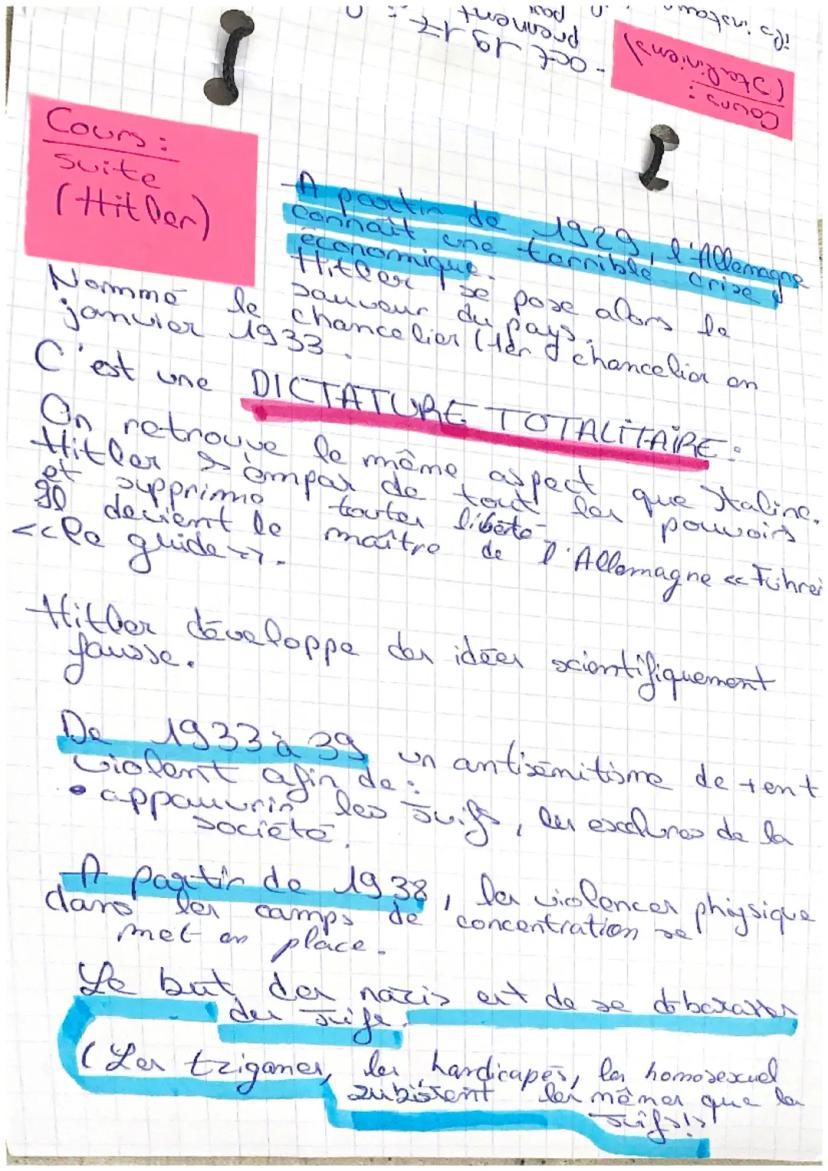 ils instau
prennent
pou
- oct 1917 :
Cours :
(Stalinien)
Cours :
suite
(Hitler)
A partir de 1929, l'Allemagne
connaît une terrible crise
économique.
Hitler se pose alors le
sauveur du pays.
Nommé le chancelier (1er chancelier en
janvier 1933.
C'est une DICTATURE TOTALITAIRE :
On retrouve le même aspect que Staline.
Hitler s'empar de tout les pouvoirs
et supprime toutes liberté
Il devient le maître de l'Allemagne « Führer
<<le guide>>.
Hitler développe des idées scientifiquement
fausse.
De 1933 à 39 un antisémitisme de + en +
violent afin de :
• appauvrir les Juifs, les exclures de la
société.
A partir de 1938, les violences phisique
dans les camps de concentration se
met en place.
Le but des nazis est de se débarasser
des Juifs.
(Les tziganes, les handicapés, les homosexuel
subissent les mêmes que les
Juifs!)